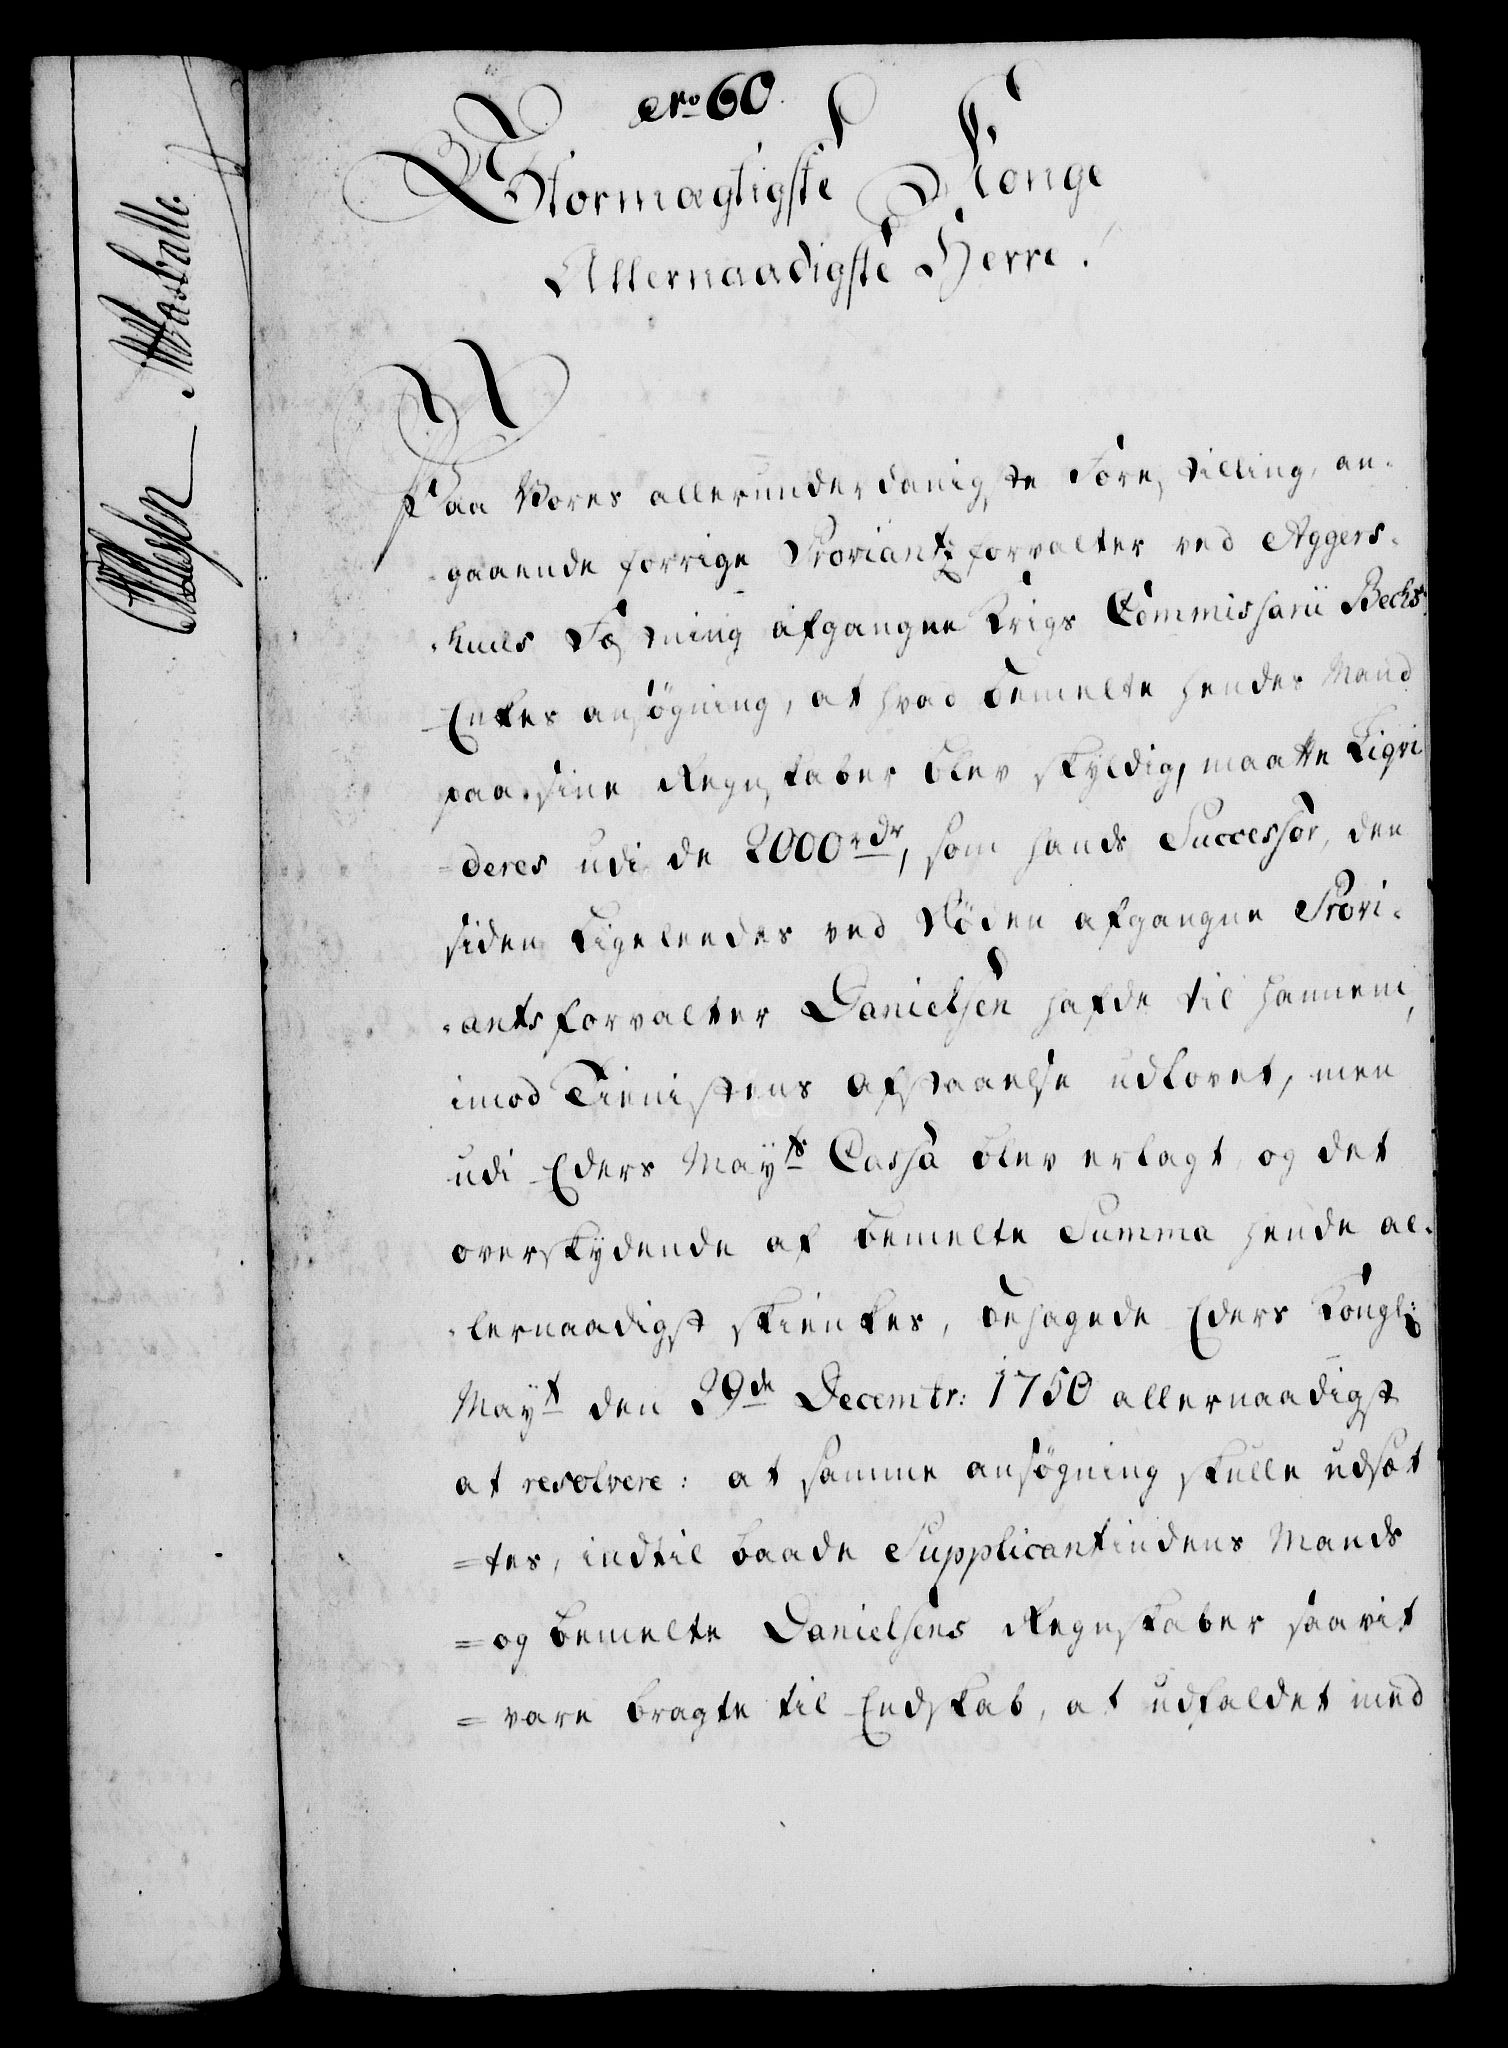 Nro 60.
Stormægtigste Konge
Allernaadigste Herre!
Paa Vores allerunderdanigste Forestilling, an-
-gaaende forrige Proviantzforvalter ved Aggers-
-huus Fæstning afgangne Krigs Commissarii Bechs
Enkes ansøgning, at hvad bemelte hendes Mand
paa sine Regnskaber blev skyldig, maatte Liqvi
-deres udi de 2000 rdr, som hands Successor, den
siden ligeleedes ved Døden afgangne Provi-
-antsforvalter Danielsen hafde til hannem,
imod Tienistens afstaaelse udlovet, men
udi Eders Mayts Cassa blev erlagt, og det
overskydende af bemelte Summa hende al-
-lernaadigst skienkes, behagede Eders Kongl:
Mayt den 29de Decembr: 1750 allernaadigst
at resolvere: at samme ansøgning skulle udsæt
=tes, indtil baade Supplicantindens Mands
=og bemelte Danielsens Regnskaber saavit
=vare bragte til Endskab, at udfaldet med